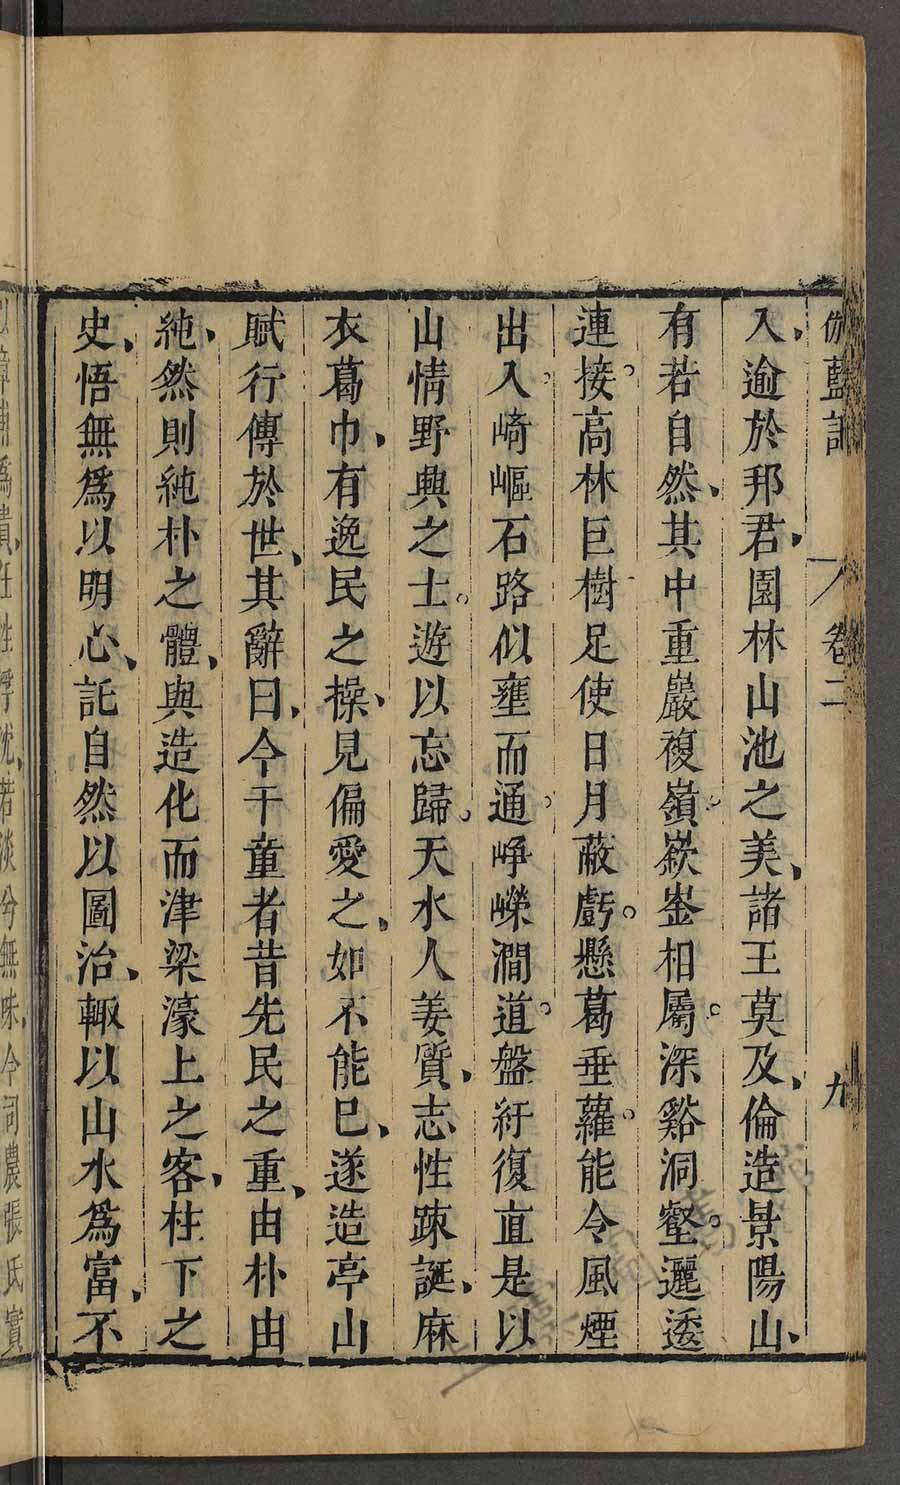 伽藍記 卷二 九
入逾於邦君園林山池之美諸王莫及倫造景陽山
有若自然其中重巖複嶺嶔崟相屬深谿洞壑邐逶
連接高林巨樹足使日月蔽虧懸葛垂蘿能令風煙
出入崎嶇石路似壅而通崢嶸澗道盤紆復直是以
山情野興之士遊以忘歸天水人姜質志性疎誕麻
衣葛巾有逸民之操見偏愛之如不能已遂造亭山
賦行傳於世其辭曰今干童者昔先民之重由朴由
純然則純朴之體與造化而津梁濠上之客柱下之
史悟無為以明心託自然以圖治輙以山水為富不
以章甫為貴任性浮沈若淡兮無味今司農張氏實